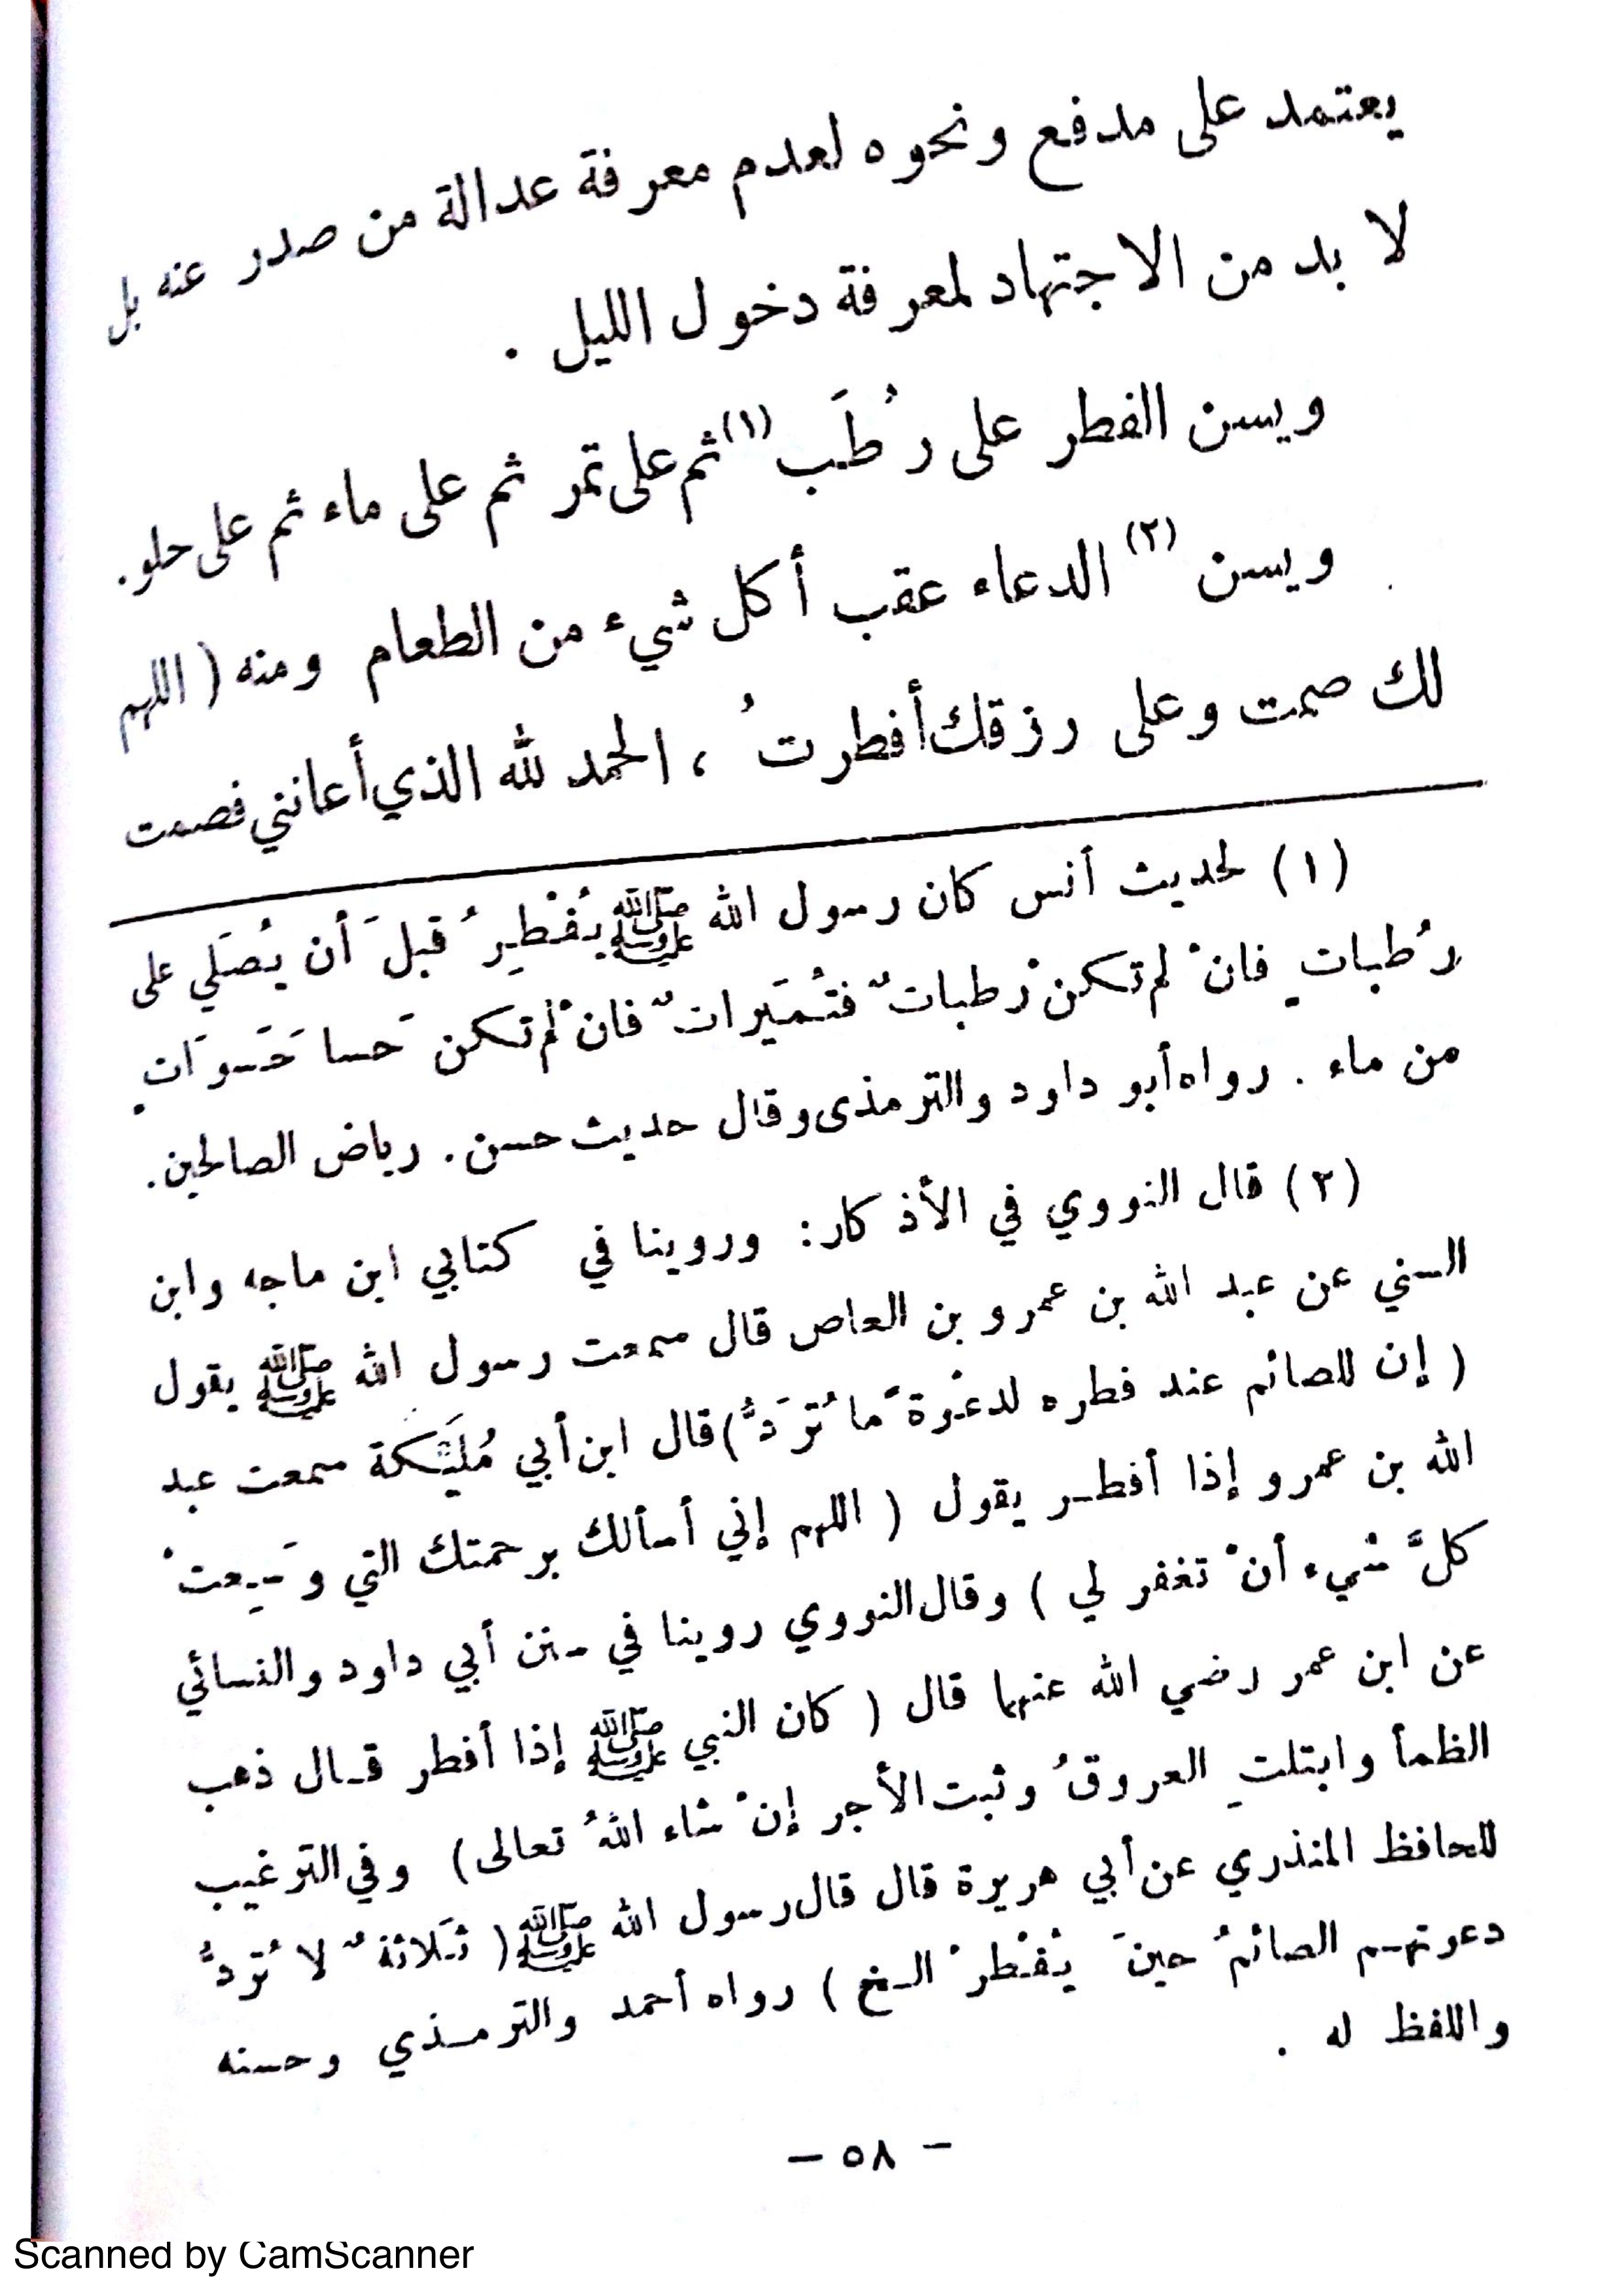 يعتمد على مدفع ونحوه لعدم معرفة عدالة من صدر عنه بل
لا بد من الاجتهاد لمعرفة دخول الليل .
ويسن الفطر على رُطَب (١) ثم على تمر ثم على ماء ثم على حلو.
ويسن (٢) الدعاء عقب أكل شيء من الطعام ومنه ( اللهم
لك صمت وعلى رزقك أفطرتُ ، الحمد لله الذي أعانني فصمت
(١) لحديث أنس كان رسول الله ﷺ يُفْطِرُ قبلَ أن يُصَلي على
رُطبات فانْ لم تكن رُطباتٌ فتُمَيراتٌ فانْ لم تكن حَسا حَسَوَاتٍ
من ماء . رواه أبو داود والترمذى وقال حديث حسن. رياض الصالحين.
(٢) قال النووي في الأذكار: وروينا في كتابي ابن ماجه وابن
السني عن عبد الله بن عمرو بن العاص قال سمعت رسول الله ﷺ يقول
( إن للصائم عند فطره لدعْوة ما تُرَدُّ) قال ابن أبي مُلَيْكة سمعت عبد
الله بن عمرو إذا أفطر يقول ( اللهم إني أسألك برحمتك التي وَسِعتْ
كلَّ شيء أنْ تغفر لي ) وقال النووي روينا في سنن أبي داود والنسائي
عن ابن عمر رضي الله عنهما قال ( كان النبي ﷺ إذا أفطر قال ذهب
الظمأ وابتلتِ العروقُ وثبت الأجر إنْ شاء اللهُ تعالى) وفي الترغيب
للحافظ المنذري عن أبي هريرة قال قال رسول الله ﷺ ( ثَلاثةٌ لا تُرَدُّ
دعوتهم الصائمُ حينَ يُفْطرْ الخ ) رواه أحمد والترمذي وحسنه
واللفظ له .
– ٥٨ –
Scanned by CamScanner